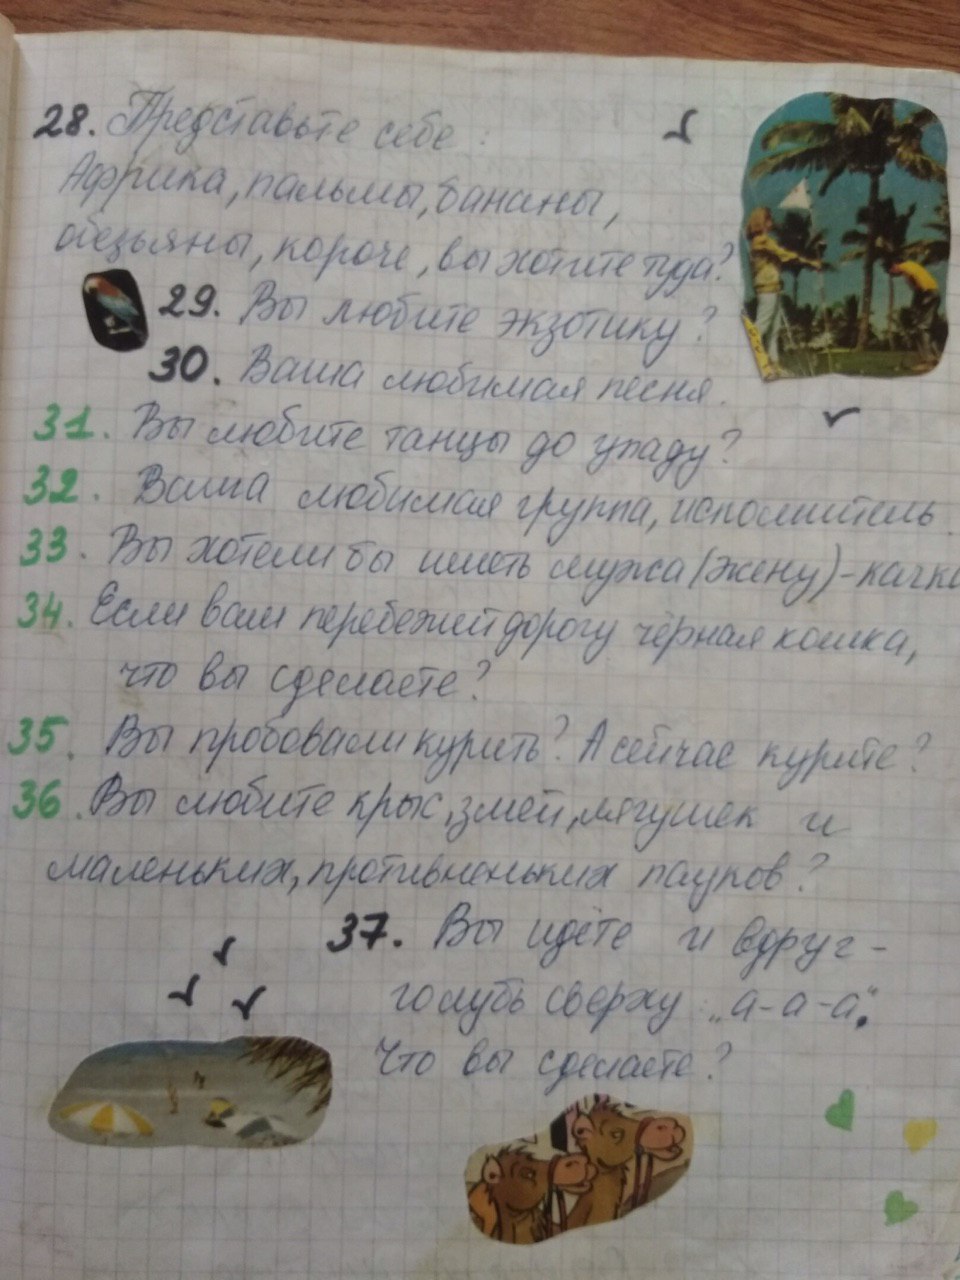 28. Представьте себе:
Африка, пальмы, бананы,
обезьяны, короче, вы хотите туда?
29. Вы любите экзотику?
30. Ваша любимая песня.
31. Вы любите танцы до упаду?
32. Ваша любимая группа, исполнитель.
33. Вы хотели бы иметь мужа (жену)-качк
34. Если вам перебежит дорогу чёрная кошка,
что вы сделаете?
35. Вы пробовали курить? А сейчас курите?
36. Вы любите крыс, змей, лягушек и
маленьких, противненьких пауков?
37. Вы идёте и вдруг -
голубь сверху: „а-а-а".
Что вы сделаете?